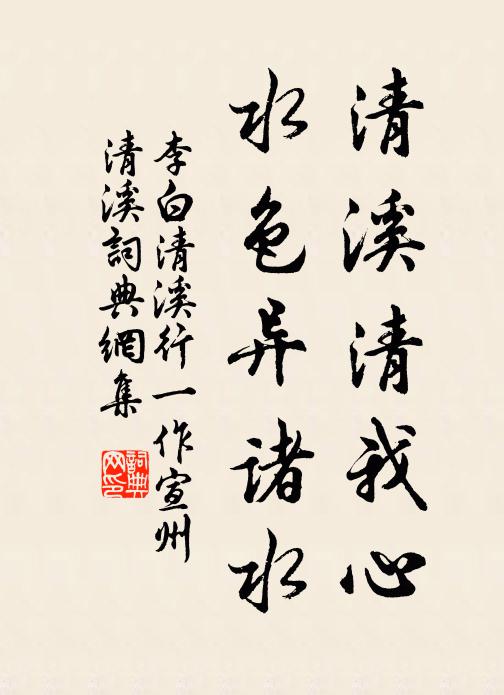 清溪清我心
水色异諸水
李白清溪行一作宣州
清溪詞典網集
詞典网印